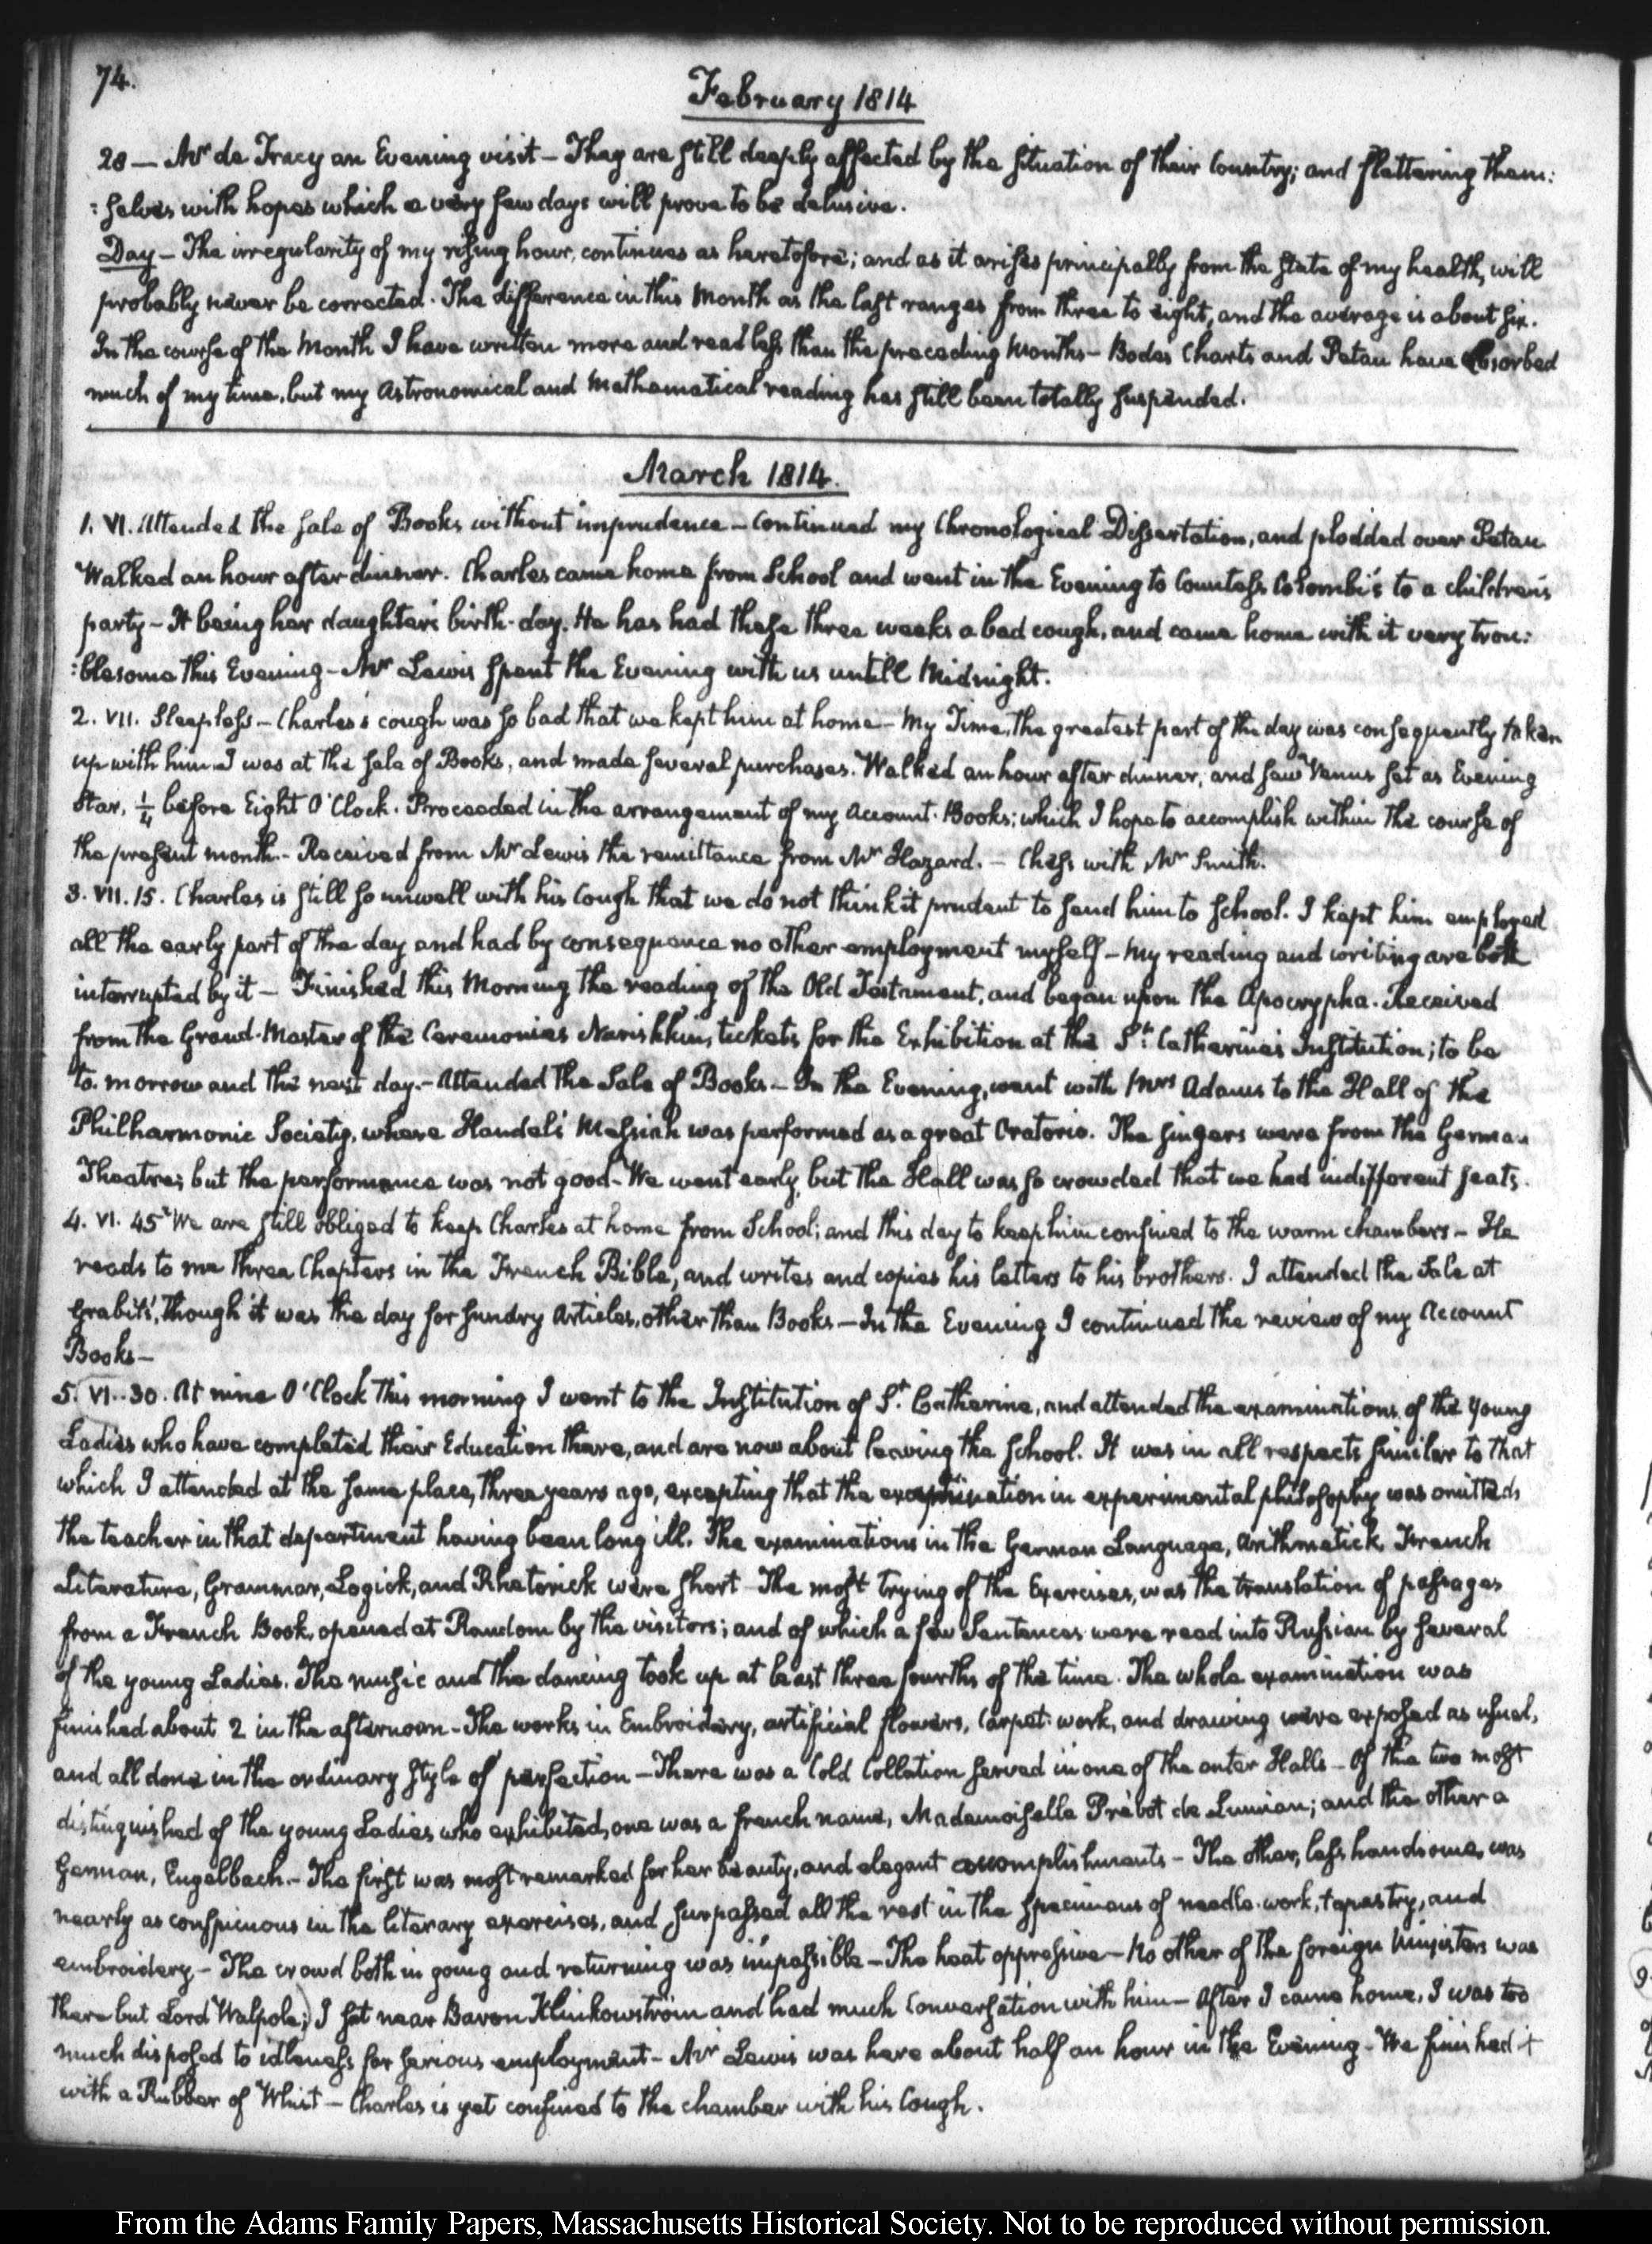 74.
February 1814
28 — Mr de Tracy an Evening visit — They are still deeply affected by the situation of their Country; and flattering them:
:selves with hopes which a very few days will prove to be delusive.
Day — The irregularity of my rising hour, continues as heretofore; and as it arises principally from the state of my health, will
probably never be corrected. The difference in this Month as the last ranges from three to eight, and the average is about six.
In the course of the Month I have written more and read less than the preceding Months — Bodes Charts and Petau have absorbed
much of my time, but my Astronomical and Mathematical reading has still been totally suspended.
March 1814.
1. VI. Attended the sale of Books without imprudence — Continued my Chronological Dissertation, and plodded over Petau
Walked an hour after dinner. Charles came home from School and went in the Evening to Countess Colombi's to a children's
party — It being her daughter's birth-day. He has had these three weeks a bad cough, and came home with it very trou:
:blesome this Evening — Mr Lewis spent the Evening with us untill Midnight.
2. VII. Sleepless — Charles's cough was so bad that we kept him at home — My Time, the greatest part of the day was consequently taken
up with him. I was at the sale of Books, and made several purchases. Walked an hour after dinner, and saw Venus set as Evening
Star, 1/4 before Eight O'Clock. Proceeded in the arrangement of my Account-Books; which I hope to accomplish within the course of
the present month — Received from Mr Lewis the remittance from Mr Hazard. — Chess with Mr Smith.
3. VII. 15. Charles is still so unwell with his Cough that we do not think it prudent to send him to School. I kept him employed
all the early part of the day and had by consequence no other employment myself — My reading and writing are both
interrupted by it — Finished this Morning the reading of the Old Testament, and began upon the Apocrypha. Received
from the Grand-Master of the Ceremonies Narishkin, tickets for the Exhibition at the St. Catherine's Institution; to be
to-morrow and the next day — Attended the Sale of Books — In the Evening, went with Mrs Adams to the Hall of the
Philharmonic Society, where Handel's Messiah was performed as a great Oratorio. The singers were from the German
Theatre; but the performance was not good — We went early, but the Hall was so crowded that we had indifferent seats.
4. VI. 45. We are still obliged to keep Charles at home from School; and this day to keep him confined to the warm chambers — He
reads to me three Chapters in the French Bible, and writes and copies his letters to his brothers. I attended the sale at
Grabit's, though it was the day for sundry Articles, other than Books — In the Evening I continued the review of my Account
Books —
5. VI. 30. At nine O'Clock this morning I went to the Institution of St. Catherine, and attended the examinations of the Young
Ladies who have completed their Education there, and are now about leaving the School. It was in all respects similar to that
which I attended at the same place, three years ago, excepting that the examination in experimental philosophy was omitted,
the teacher in that department having been long ill. The examinations in the German Language, Arithmetick, French
Literature, Grammar, Logick, and Rhetorick were short — The most trying of the Exercises, was the translation of passages
from a French Book, opened at Random by the visitors; and of which a few Sentences were read into Russian by several
of the young Ladies. The music and the dancing took up at least three fourths of the time. The whole examination was
finished about 2 in the afternoon — The works in Embroidery, artificial flowers, Carpet-work, and drawing were exposed as usual,
and all done in the ordinary style of perfection — There was a Cold Collation served in one of the outer Halls — Of the two most
distinguished of the young Ladies who exhibited, one was a french name, Mademoiselle Prévot de Lumian; and the other a
German, Engelbach — The first was most remarked for her beauty, and elegant accomplishments — The other, less handsome, was
nearly as conspicuous in the literary exercises, and surpassed all the rest in the specimens of needle-work, tapestry, and
embroidery — The crowd both in going and returning was impassible — The heat oppressive — No other of the foreign Ministers was
there but Lord Walpole; I sat near Baron Klinkowström and had much Conversation with him — After I came home, I was too
much disposed to idleness for serious employment — Mr Lewis was here about half an hour in the Evening — We finished it
with a Rubber of Whist — Charles is yet confined to the chamber with his Cough.
From the Adams Family Papers, Massachusetts Historical Society. Not to be reproduced without permission.